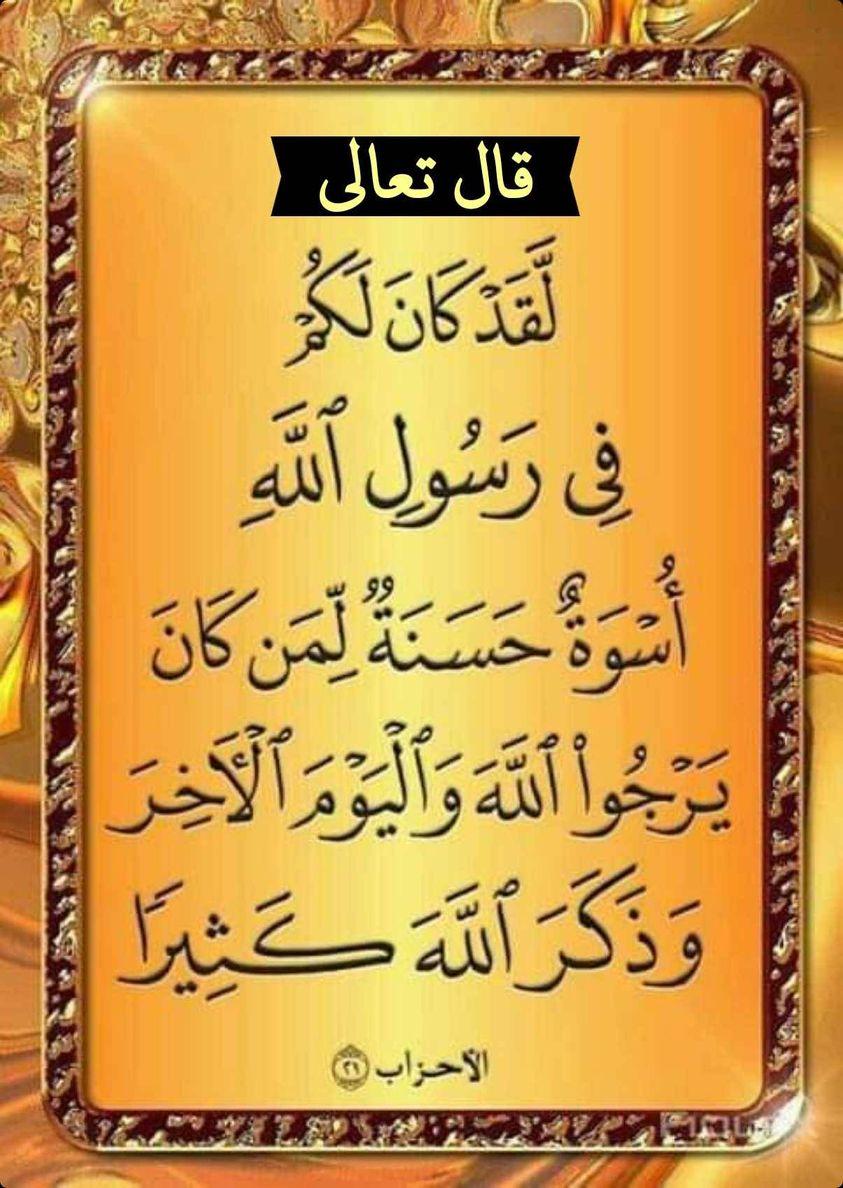 قال تعالى
لَّقَدْ كَانَ لَكُمْ
فِى رَسُولِ ٱللَّهِ
أُسْوَةٌ حَسَنَةٌ لِّمَن كَانَ
يَرْجُوا۟ ٱللَّهَ وَٱلْيَوْمَ ٱلْأَخِرَ
وَذَكَرَ ٱللَّهَ كَثِيرًا
الأحزاب ٢١